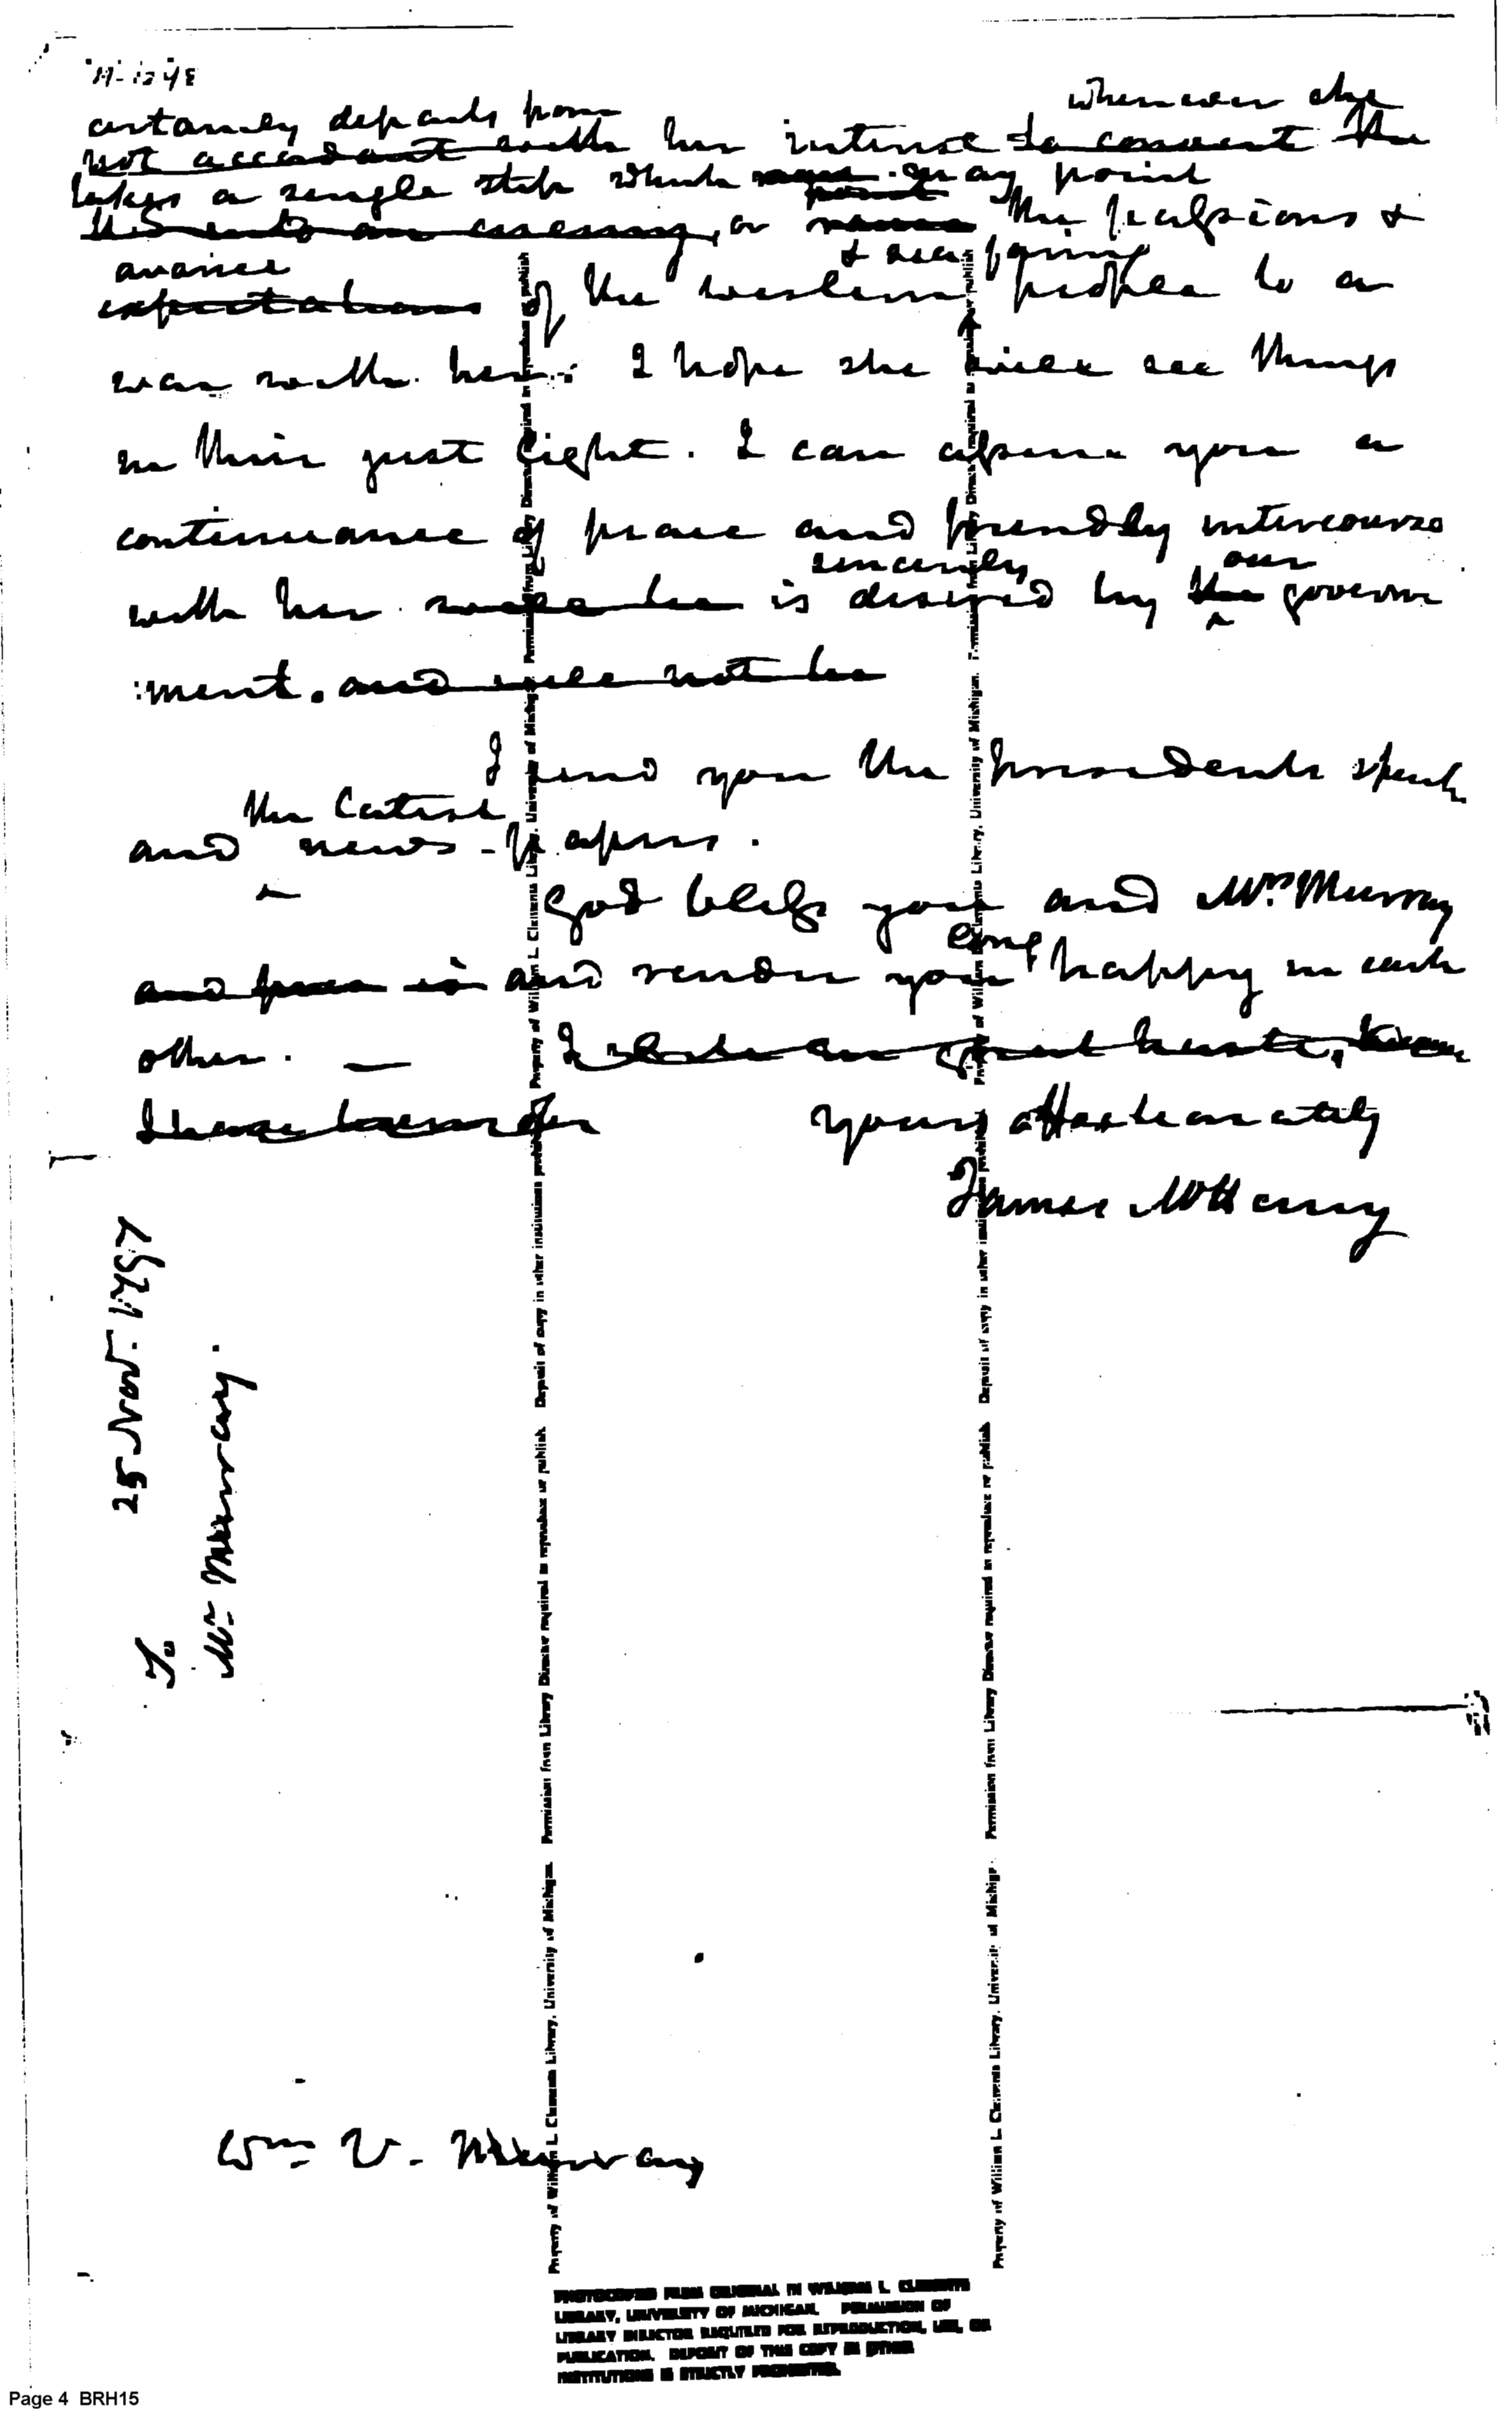 whenever she
certainly departs from
not accordant with her interest to convert the
takes a single step which may point
US into an enemy, or the passions &
avarice & series
expectations of the western people to a
war with her. I hope she will see things
in their just light. I can assure you a
continuance of peace and friendly intercourse
sincerely our
with her would be is desired by the govern
:ment. and will not be
I send you the presidents speech
the latest
and news-papers.
God bless you and Mrs. Murray
long
and and render you happy in each
other. — I write in great haste,
I have
yours affectionately
James McHenry
25 Nov. 1797
To
Mr. Murray.
Wm. V. Murray
Property of William L. Clements Library, University of Michigan. Permission from Library Director required to reproduce or publish. Deposit of copy in other institutions prohibited.
Property of William L. Clements Library, University of Michigan. Permission from Library Director required to reproduce or publish. Deposit of copy in other institutions prohibited.
PHOTOCOPIED FROM ORIGINAL IN WILLIAM L. CLEMENTS
LIBRARY, UNIVERSITY OF MICHIGAN. PERMISSION OF
LIBRARY DIRECTOR REQUIRED FOR REPRODUCTION, USE, OR
PUBLICATION. DEPOSIT OF THIS COPY IN OTHER
INSTITUTIONS IS STRICTLY PROHIBITED.
Page 4 BRH15